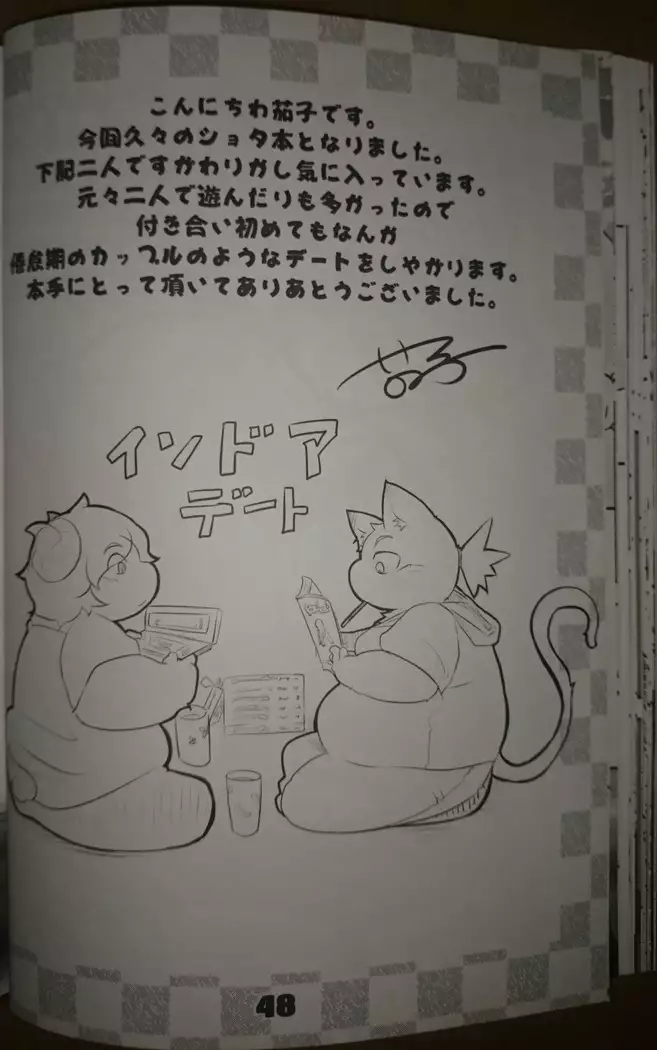 こんにちわ茄子です。
今回久々のショタ本となりました。
下記二人ですがわりかし気に入っています。
元々二人で遊んだりも多かったので
付き合い初めてもなんか
倦怠期のカップルのようなデートをしやがります。
本手にとって頂いてありあとうございました。
茄子
インドア
デート
48